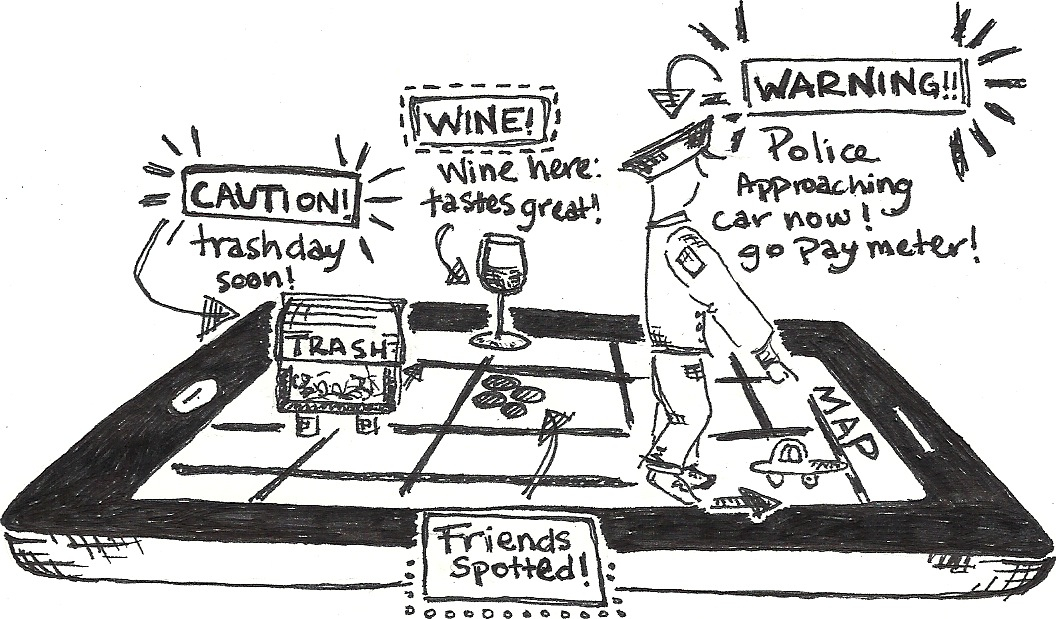 CAUTION!
trashday
soon!
WINE!
Wine here:
tastes great!
WARNING!!
Police
Approaching
car now!
go Pay meter!
TRASH
MAP
Friends
Spotted!